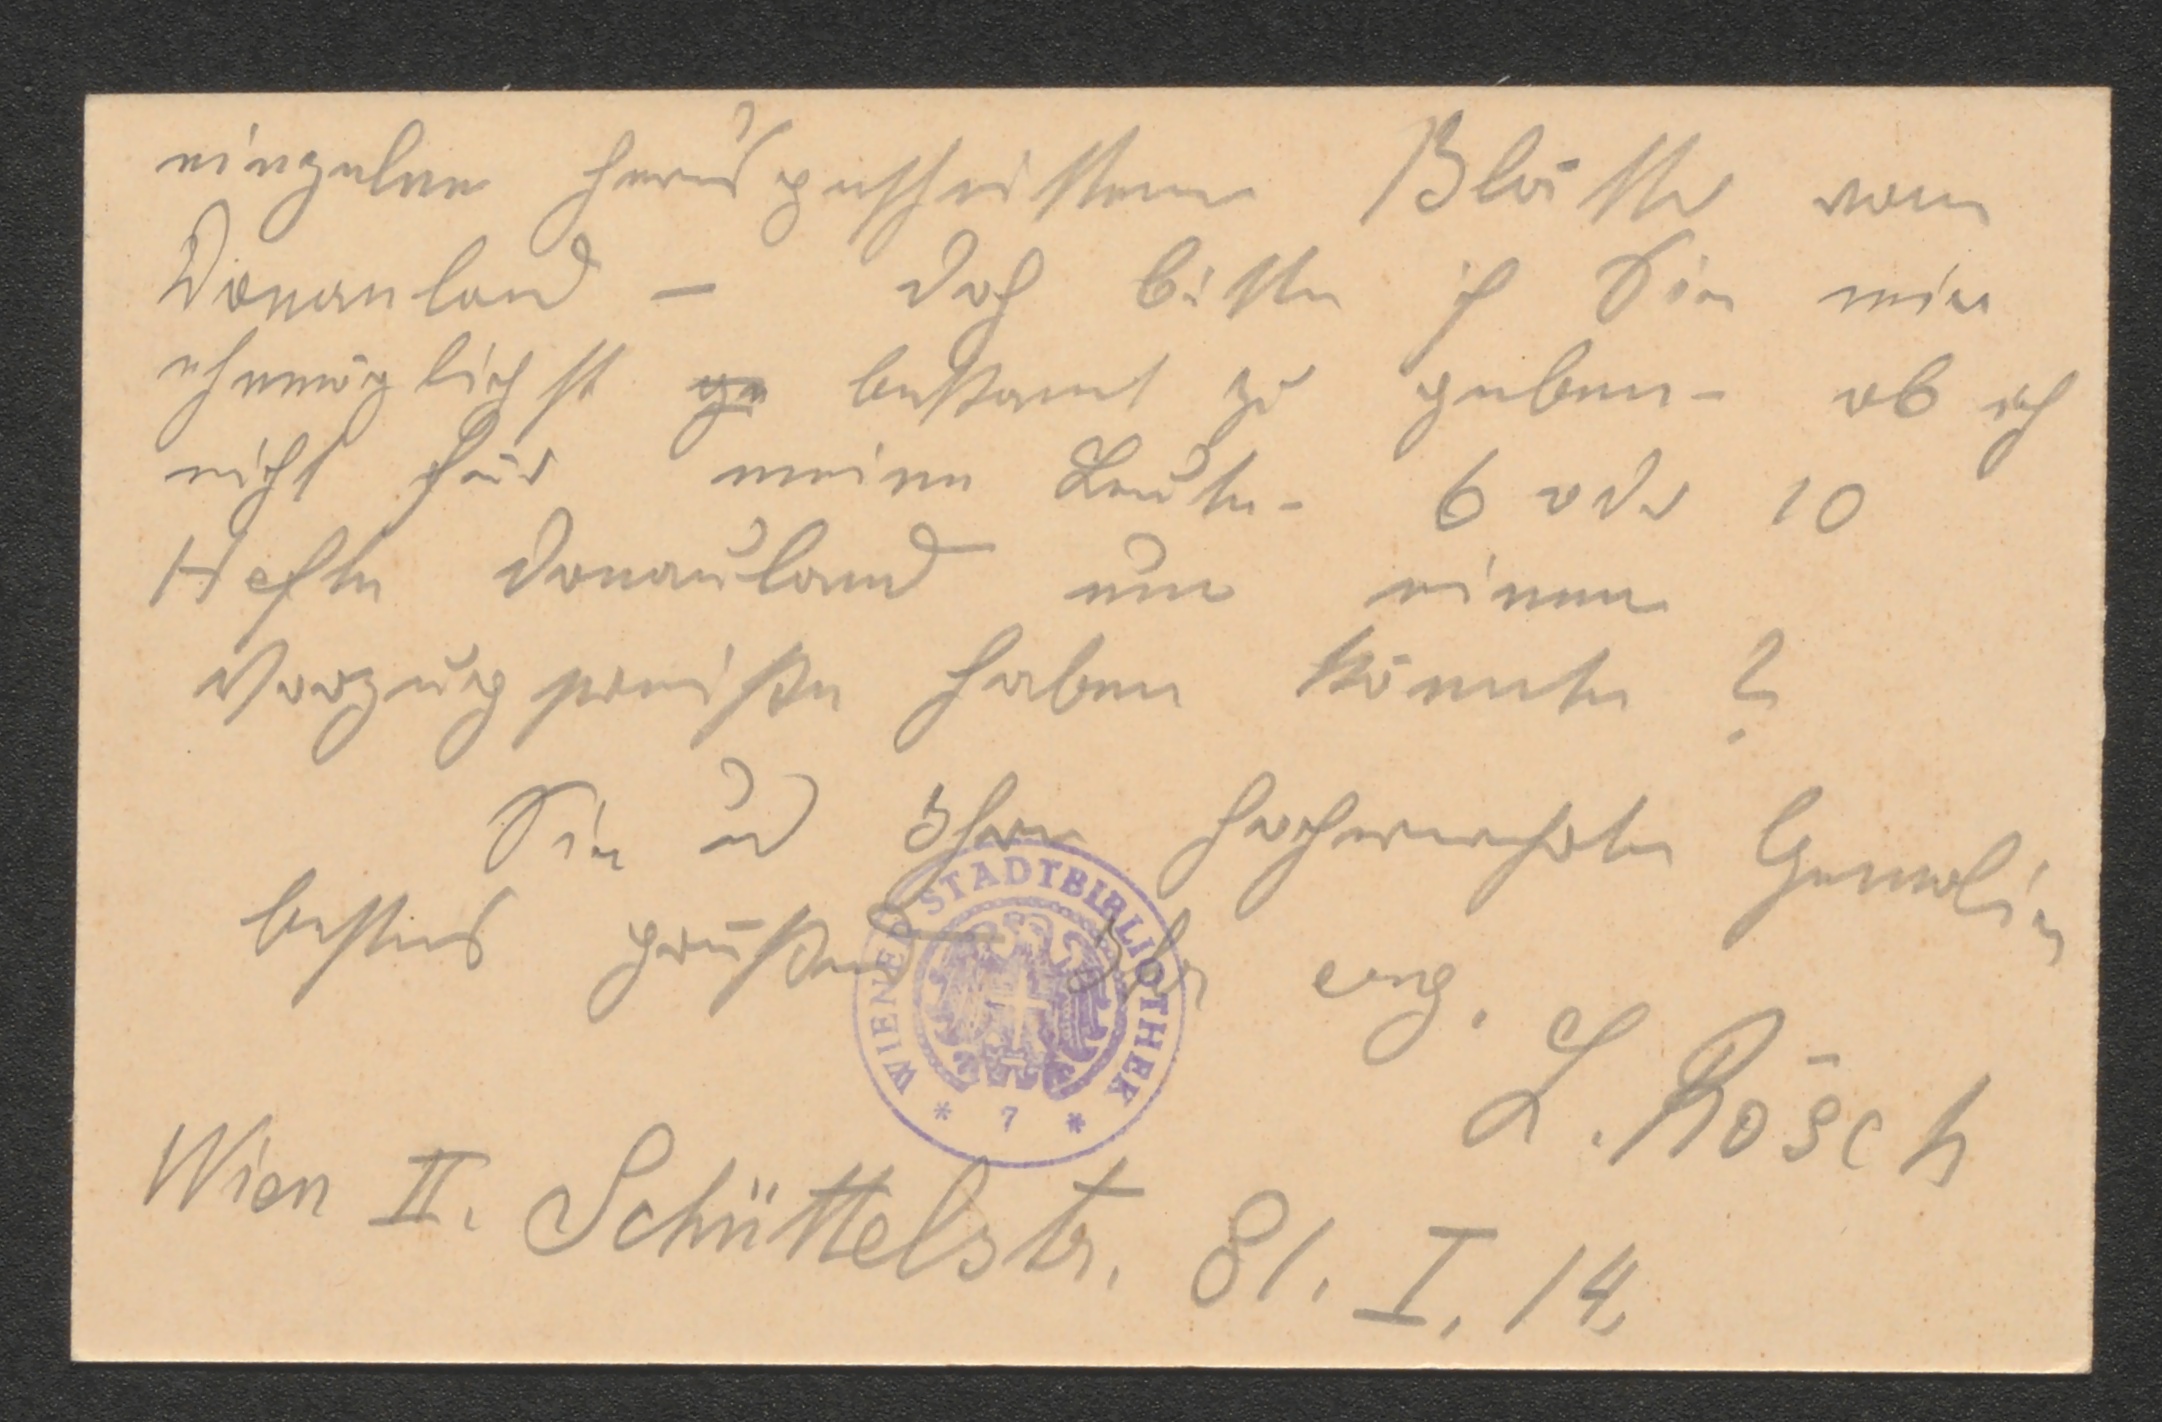 einzelne herausgeschnittene Blätter vom
Donauland – doch bitte ich Sie mir
ehemöglichst ge bekannt zu geben – ob ich
nicht für meine Leute – 6 oder 10
Hefte Donauland um einen
Vorzugspreiße haben könnte?
Sie und Ihre hochverehrte Gemalin
bestens grüßend Ihr erg.
L. Rösch
Wien II. Schüttelstr. 81. I. 14.
WIENER STADTBIBLIOTHEK
* 7 *